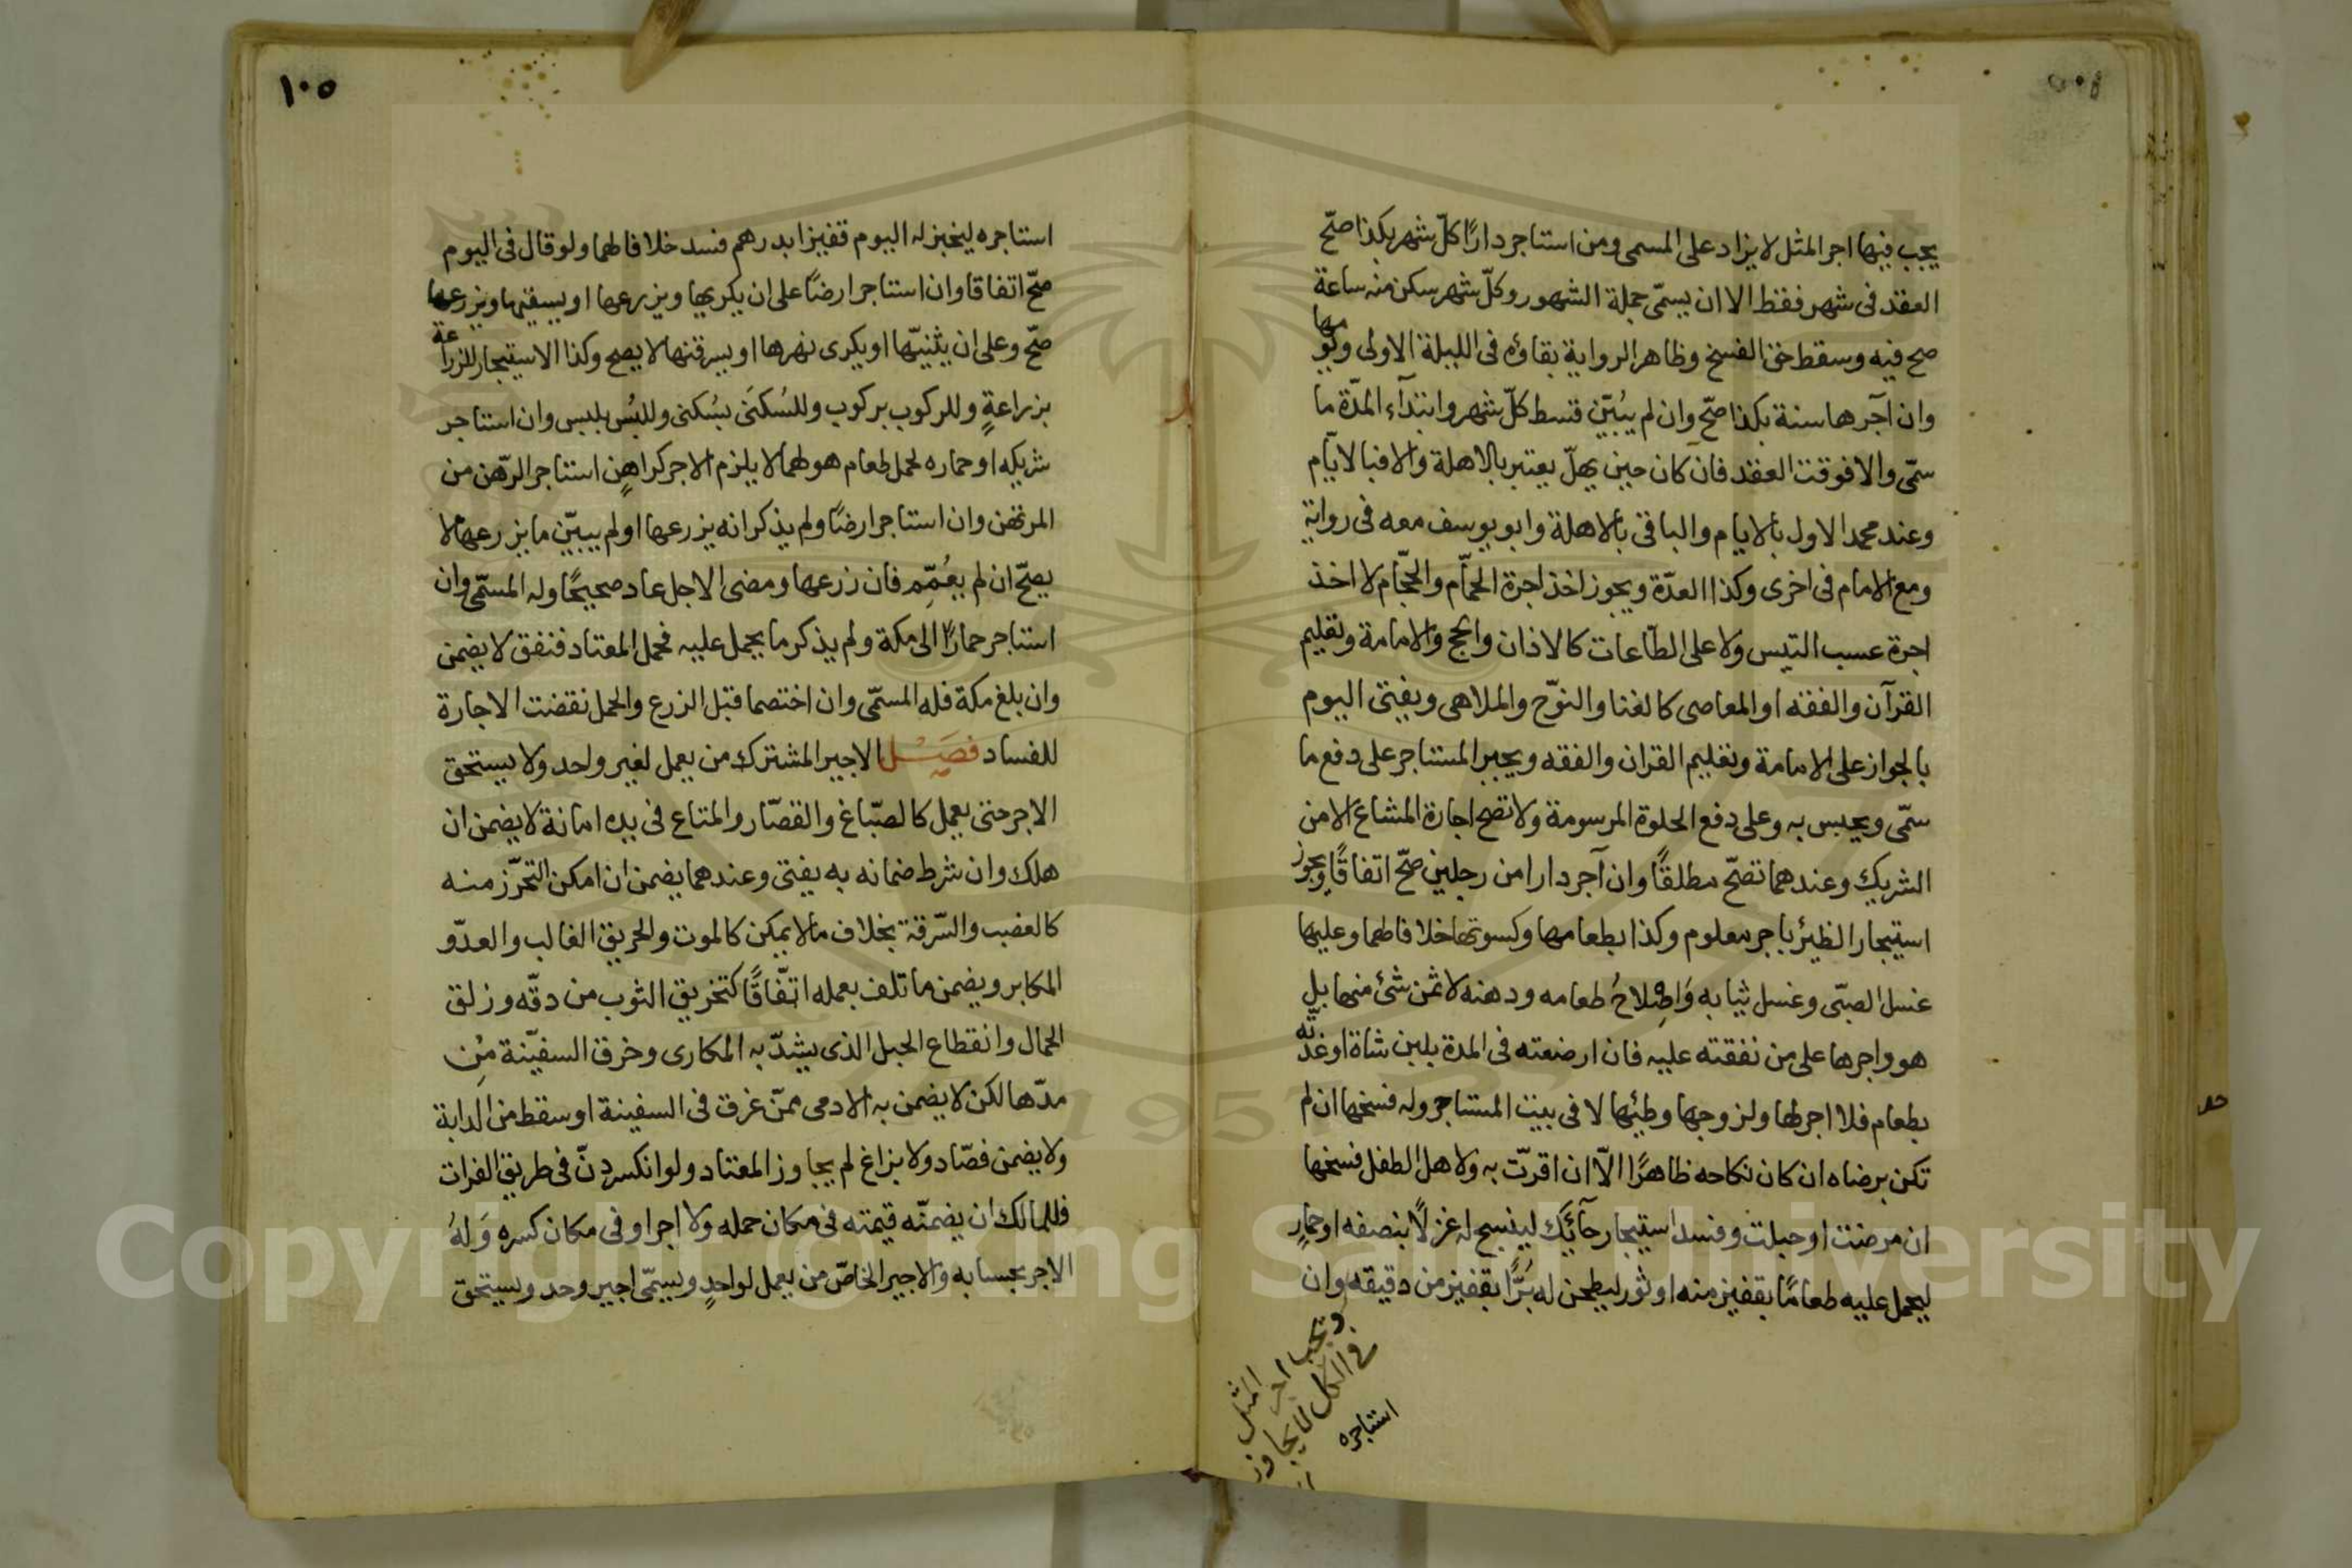 يجب فيها اجر المثل لا يزاد على المسمى ومن استاجر دارًا كلّ شهر بكذا صحّ
العقد فى شهر فقط الا ان يسمّى جملة الشهور وكلّ شهر سكن منه ساعة
صح فيه وسقط حق الفسخ وظاهر الرواية بقاؤه فى الليلة الاولى ويومها
وان آجرها سنة بكذا صحّ وان لم يُبيّن قسط كلّ شهر وابتدآء المدّة ما
سمّى والا فوقت العقد فان كان حين يهلّ يعتبر بالاهلة والا فبالايّام
وعند محمد الاول بالايام والباقى بالاهلة وابو يوسف معه فى رواية
ومع الامام فى اخرى وكذا العدّة ويجوز اخذ اجرة الحمّام والحجّام لا اخذ
اجرة عسب التيس ولا على الطّاعات كالاذان والحج والامامة وتعليم
القرآن والفقه او المعاصى كالغنا والنوّح والملاهى ويفتى اليوم
بالجواز على الامامة وتعليم القران والفقه ويجبر المستاجر على دفع ما
سمّى ويحبس به وعلى دفع الحلوة المرسومة ولا تصح اجارة المشاع الا من
الشريك وعندهما تصحّ مطلقًا وان آجر دارا من رجلين صحّ اتفاقًا ويجوز
استيجار الظئر باجر معلوم وكذا بطعامها وكسوتها خلافا طما وعليها
غسل الصبّى وغسل ثيابه وَاصِْلاحُ طعامه ودهنه لا ثمن شئ منها بل
هو واجرها على من نفقته عليه فان ارضعته فى المدة بلبن شاة او غذّته
بطعام فلا اجر لها ولزوجها وطئها لا فى بيت المستاجر وله فسخها ان لم
تكن برضاه ان كان نكاحه ظاهرًا الّا ان اقرّت به ولاهل الطفل فسخها
ان مرضت او حبلت وفسد استيجار حآئك لينسج له غزلًا بنصفه او حمارٍ
ليحمل عليه طعامًا بقفيز منه او ثور ليطحن له بُرًّا بقفيز من دقيقه وان
ويجب اجر المثل
فى الكل لا يجاوز
استاجره
١٠٥
استاجره ليخبز له اليوم قفيزا بدرهم فسد خلافا طما ولو قال فى اليوم
صحّ اتفاقا وان استاجر ارضًا على ان يكربها ويزرعها او يسقيها ويزرعها
صحّ وعلى ان يثنيّها او يكرى نهرها او يسرقنها لا يصح وكذا الاستيجار للزراعة
بزراعةٍ وللركوب بركوب وللسُكنَى بسُكنى وللبُس بلبس وان استاجر
شريكه او حماره لحمل طعام هو لهما لا يلزم الاجر كراهنٍ استاجر الرّهن من
المرتهن وان استاجر ارضًا ولم يذكر انه يزرعها او لم يبيّن ما يزرعها لا
يصحّ ان لم يعُمّم فان زرعها ومضى الاجل عاد صحيحًا وله المسمّى وان
استاجر حمارًا الى مكة ولم يذكر ما يحمل عليه فحمل المعتاد فنفق لا يضمن
وان بلغ مكة فله المسمّى وان اختصما قبل الزرع والحمل نقضت الاجارة
للفساد فصَـْـل الاجير المشترك من يعمل لغير واحد ولا يستحق
الاجر حتى يعمل كالصبّاغ والقصّار والمتاع فى يده امانة لا يضمن ان
هلك وان شرط ضمانه به يفتى وعندهما يضمن ان امكن التحرّز منه
كالغصب والسّرقة بخلاف ما لا يمكن كالموت والحريق الغالب والعدّو
المكابر ويضمن ما تلف بعمله اتّفاقًا كتخريق الثوب من دقّه وزلق
الحمال وانقطاع الحبل الذى يشدّ به المكارى وخرق السفينة مِن
مدّها لكن لا يضمن به الادمى ممّن غرق فى السفينة او سقط من الدابة
ولا يضمن فصّاد ولا بزاغ لم يجاوز المعتاد ولو انكسر دنّ فى طريق الفرات
فللمالك ان يضمنّه قيمته فى مكان حمله ولا اجر او فى مكان كسره وَلهُ
الاجر بحسابه والاجير الخاصّ من يعمل لواحدٍ ويسمّى اجير وحد ويستحق
Copyright © King Saud University
1957